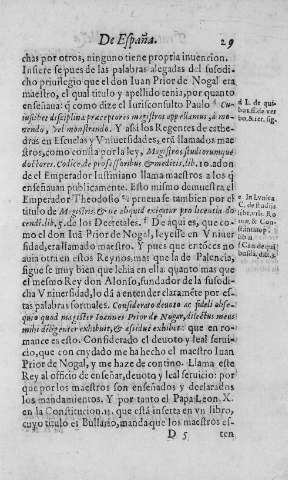 De España. 29
chas por otros, ninguno tiene propria inuencion.
Insiere se pues de las palabras alegadas del susodi-
cho priuilegio que el don Iuan Prior de Nogal era
maestro, el qual titulo y apellido tenia, por quanto
enseñaua: q̃ como dize el Iurisconsulto Paulo d Cu-
iuslibet disciplinæ præceptores magistros appellamus, à mo-
nendo, vel monstrando. Y assi los Regentes de cathe-
dras en Escuelas y Vniuersidades, erã llamados mae
stros, como consta por la ley, Magistros studiorumque
doctores. Codice, de professoribus & medicis, lib. 10. adon
de el Emperador Iustiniano llama maestros a los q̃
enseñauan publicamente. Esto mismo demuestra el
Emperador Theodosio e y prueua se tambien por el
titulo de Magistris. & ne aliquid exigatur pro licentia do-
cendi. lib. 5. de los Decretales. f De aqui es, que co-
mo el don Iuã Prior de Nogal, leyesse en Vniuer
sidad, era llamado maestro. Y pues que entõces no
auia otra en estos Reynos, mas que la de Palencia,
sigue se muy bien que lehia en ella: quanto mas que
el mismo Rey don Alonso, fundador de la susodi-
cha Vniuersidad, lo dà a entender claramẽte por es-
tas palabras formales. Considerato deuoto ac fideli obse-
quio quod magister Ioannes Prior de Nogar, dilectus meus
mihi diligenter exhibuit, & assiduè exhibet: que en ro-
mance es esto. Considerado el deuoto y leal serui-
cio, que con cuydado me ha hecho el maestro Iuan
Prior de Nogal, y me haze de contino. Llama este
Rey al officio de enseñar, deuoto y leal seruicio: por
que por los maestros son enseñados y declarados
los mandamientos. Y por tanto el Papa Leon. X.
en la Constitucion. 13. que està inserta en vn libro,
cuyo titulo es Bullario, manda que los maestros es-
D 5 ten
d L. de qui-
bus, ff. de ver
bo. & rer. sig.
e In L. vnica
C. de studijs
libe. vrb. Ro
mæ, & Con-
stantinop.
lib. 11.